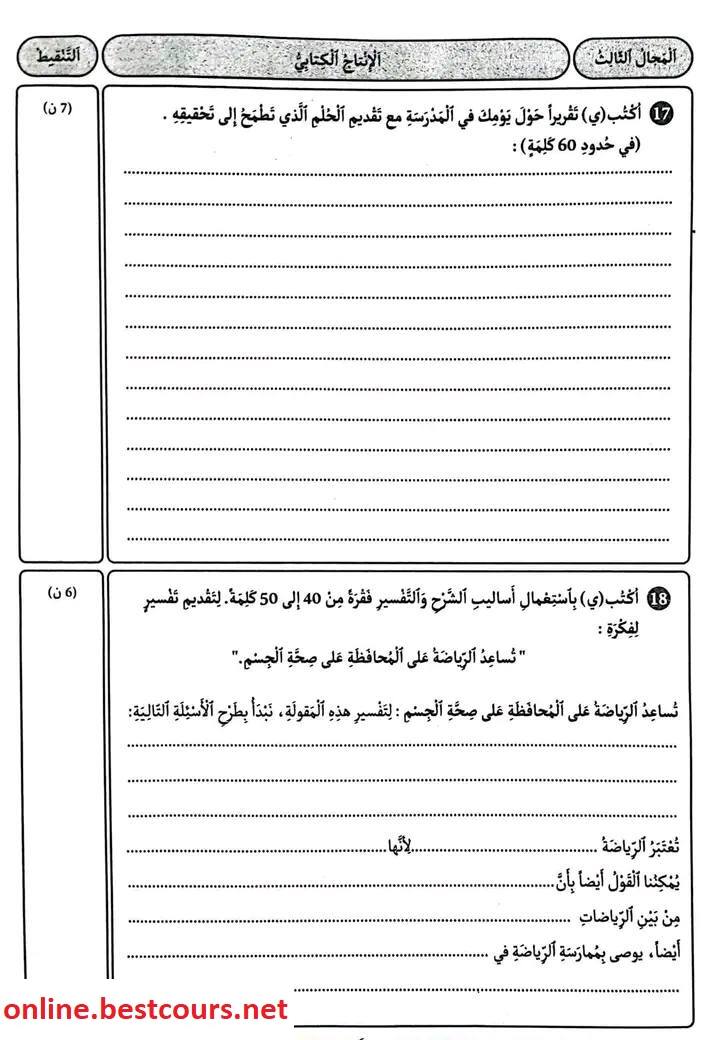 اَلْمَجالُ اَلثّالِثُ
اَلْإِنْتاجُ اَلْكِتابِيُّ
اَلتَّنْقيطُ
17 اُكْتُب(ي) تَقْريراً حَوْلَ يَوْمِكَ في اَلْمَدْرَسَةِ مع تَقْديمِ اَلْحُلْمِ اَلَّذي تَطْمَحُ إلى تَحْقيقِهِ .
(7 ن)
(في حُدودِ 60 كَلِمَةٍ) :
18 اُكْتُب(ي) بِاَسْتِعْمالِ أَساليبِ اَلشَّرْحِ وَاَلتَّفْسيرِ فَقْرَةً مِنْ 40 إلى 50 كَلِمَةً. لِتَقْديمِ تَفْسيرٍ
(6 ن)
لِفِكْرَةِ :
" تُساعِدُ اَلرِّياضَةُ عَلى اَلْمُحافَظَةِ عَلى صِحَّةِ اَلْجِسْمِ."
تُساعِدُ اَلرِّياضَةُ عَلى اَلْمُحافَظَةِ عَلى صِحَّةِ اَلْجِسْمِ : لِتَفْسيرِ هذِهِ اَلْمَقولَةِ، نَبْدَأُ بِطَرْحِ اَلْأَسْئِلَةِ اَلتّالِيَةِ:
تُعْتَبَرُ اَلرِّياضَةُ ............ لِأَنَّها............
يُمْكِنُنا اَلْقَوْلُ أَيْضاً بِأَنَّ............
مِنْ بَيْنِ اَلرِّياضاتِ ............
أَيْضاً، يوصى بِمُمارَسَةِ اَلرِّياضَةِ في ............
online.bestcours.net